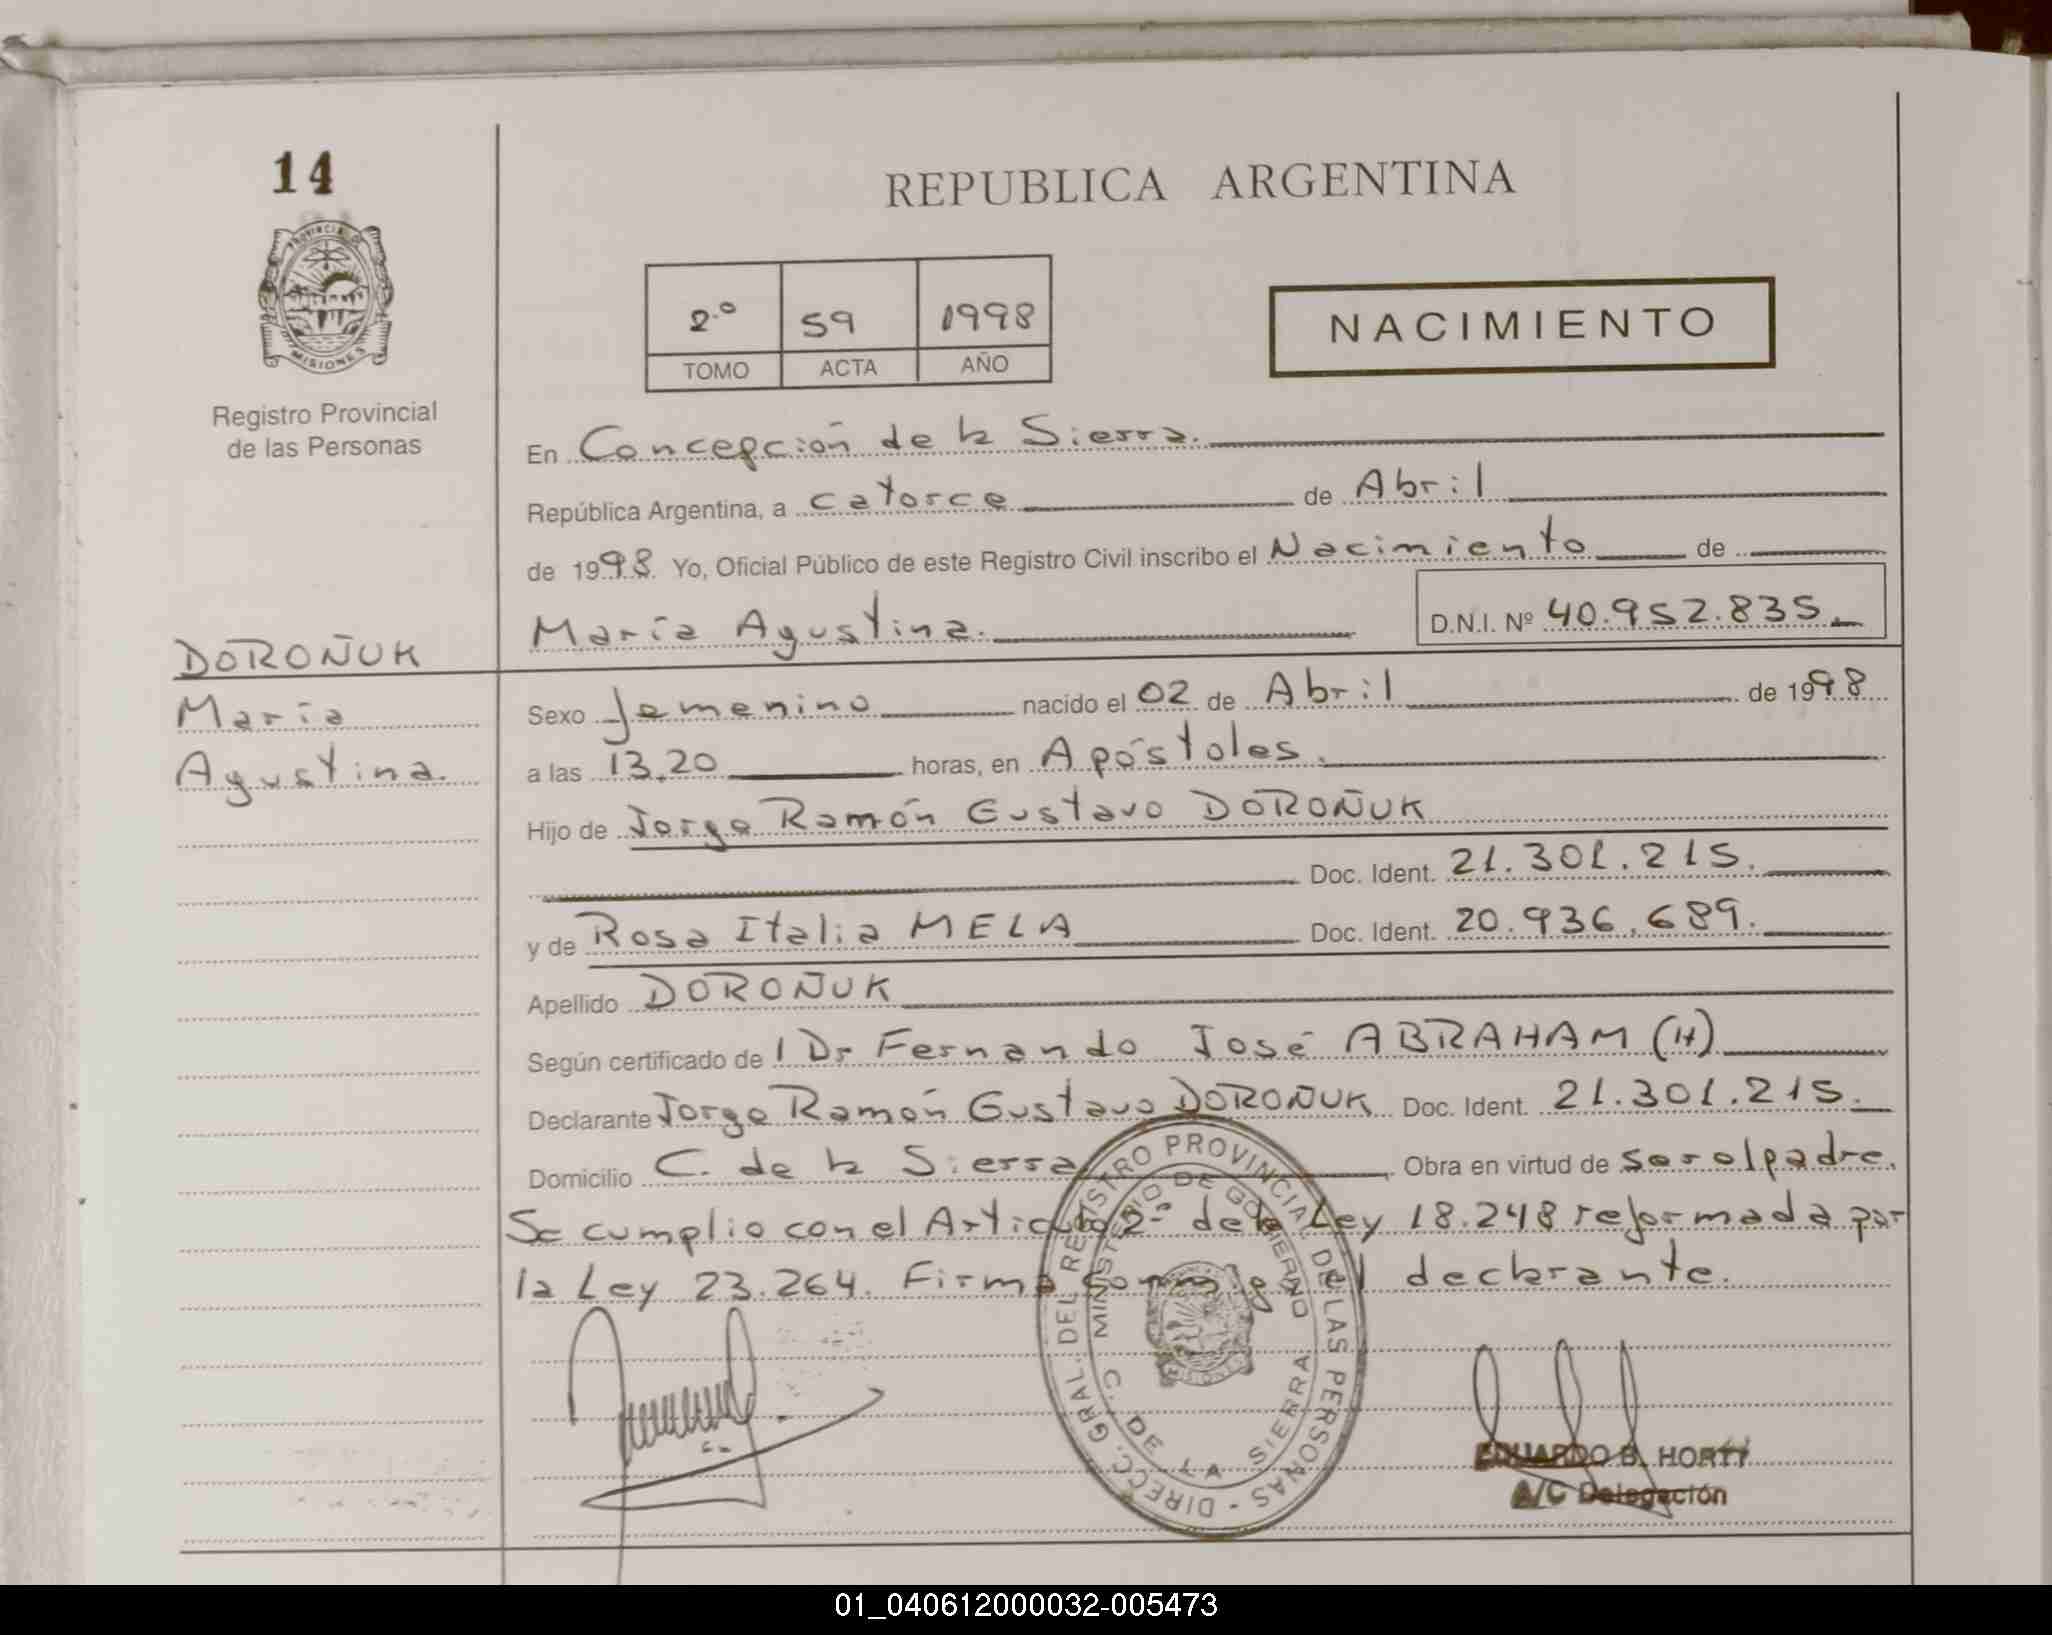 14
PROVINCIA DE
MISIONES
Registro Provincial
de las Personas
REPUBLICA ARGENTINA
2.º 59 1998
TOMO ACTA AÑO
NACIMIENTO
En Concepción de la Sierra.
República Argentina, a catorce de Abril
de 1998 Yo, Oficial Público de este Registro Civil inscribo el Nacimiento de
María Agustina. D.N.I. Nº 40.952.835
DOROÑUK
María
Agustina.
Sexo femenino nacido el 02 de Abril de 1998
a las 13,20 horas, en Apóstoles.
Hijo de Jorge Ramón Gustavo DOROÑUK
Doc. Ident. 21.301.215.
y de Rosa Italia MELA Doc. Ident. 20.936.689.
Apellido DOROÑUK
Según certificado de l Dr Fernando José ABRAHAM (H)
Declarante Jorge Ramón Gustavo DOROÑUK Doc. Ident. 21.301.215.
Domicilio C. de la Sierra Obra en virtud de ser el padre.
Se cumplio con el Articulo 2º de la Ley 18.248 reformada por
la Ley 23.264. Firma conmigo el declarante.
DIRECC. GRAL. DEL REGISTRO PROVINCIAL DE LAS PERSONAS -
MINISTERIO DE GOBIERNO
C. DE LA SIERRA
MISIONES
EDUARDO B. HORTT
A/C Delegación
01_040612000032-005473